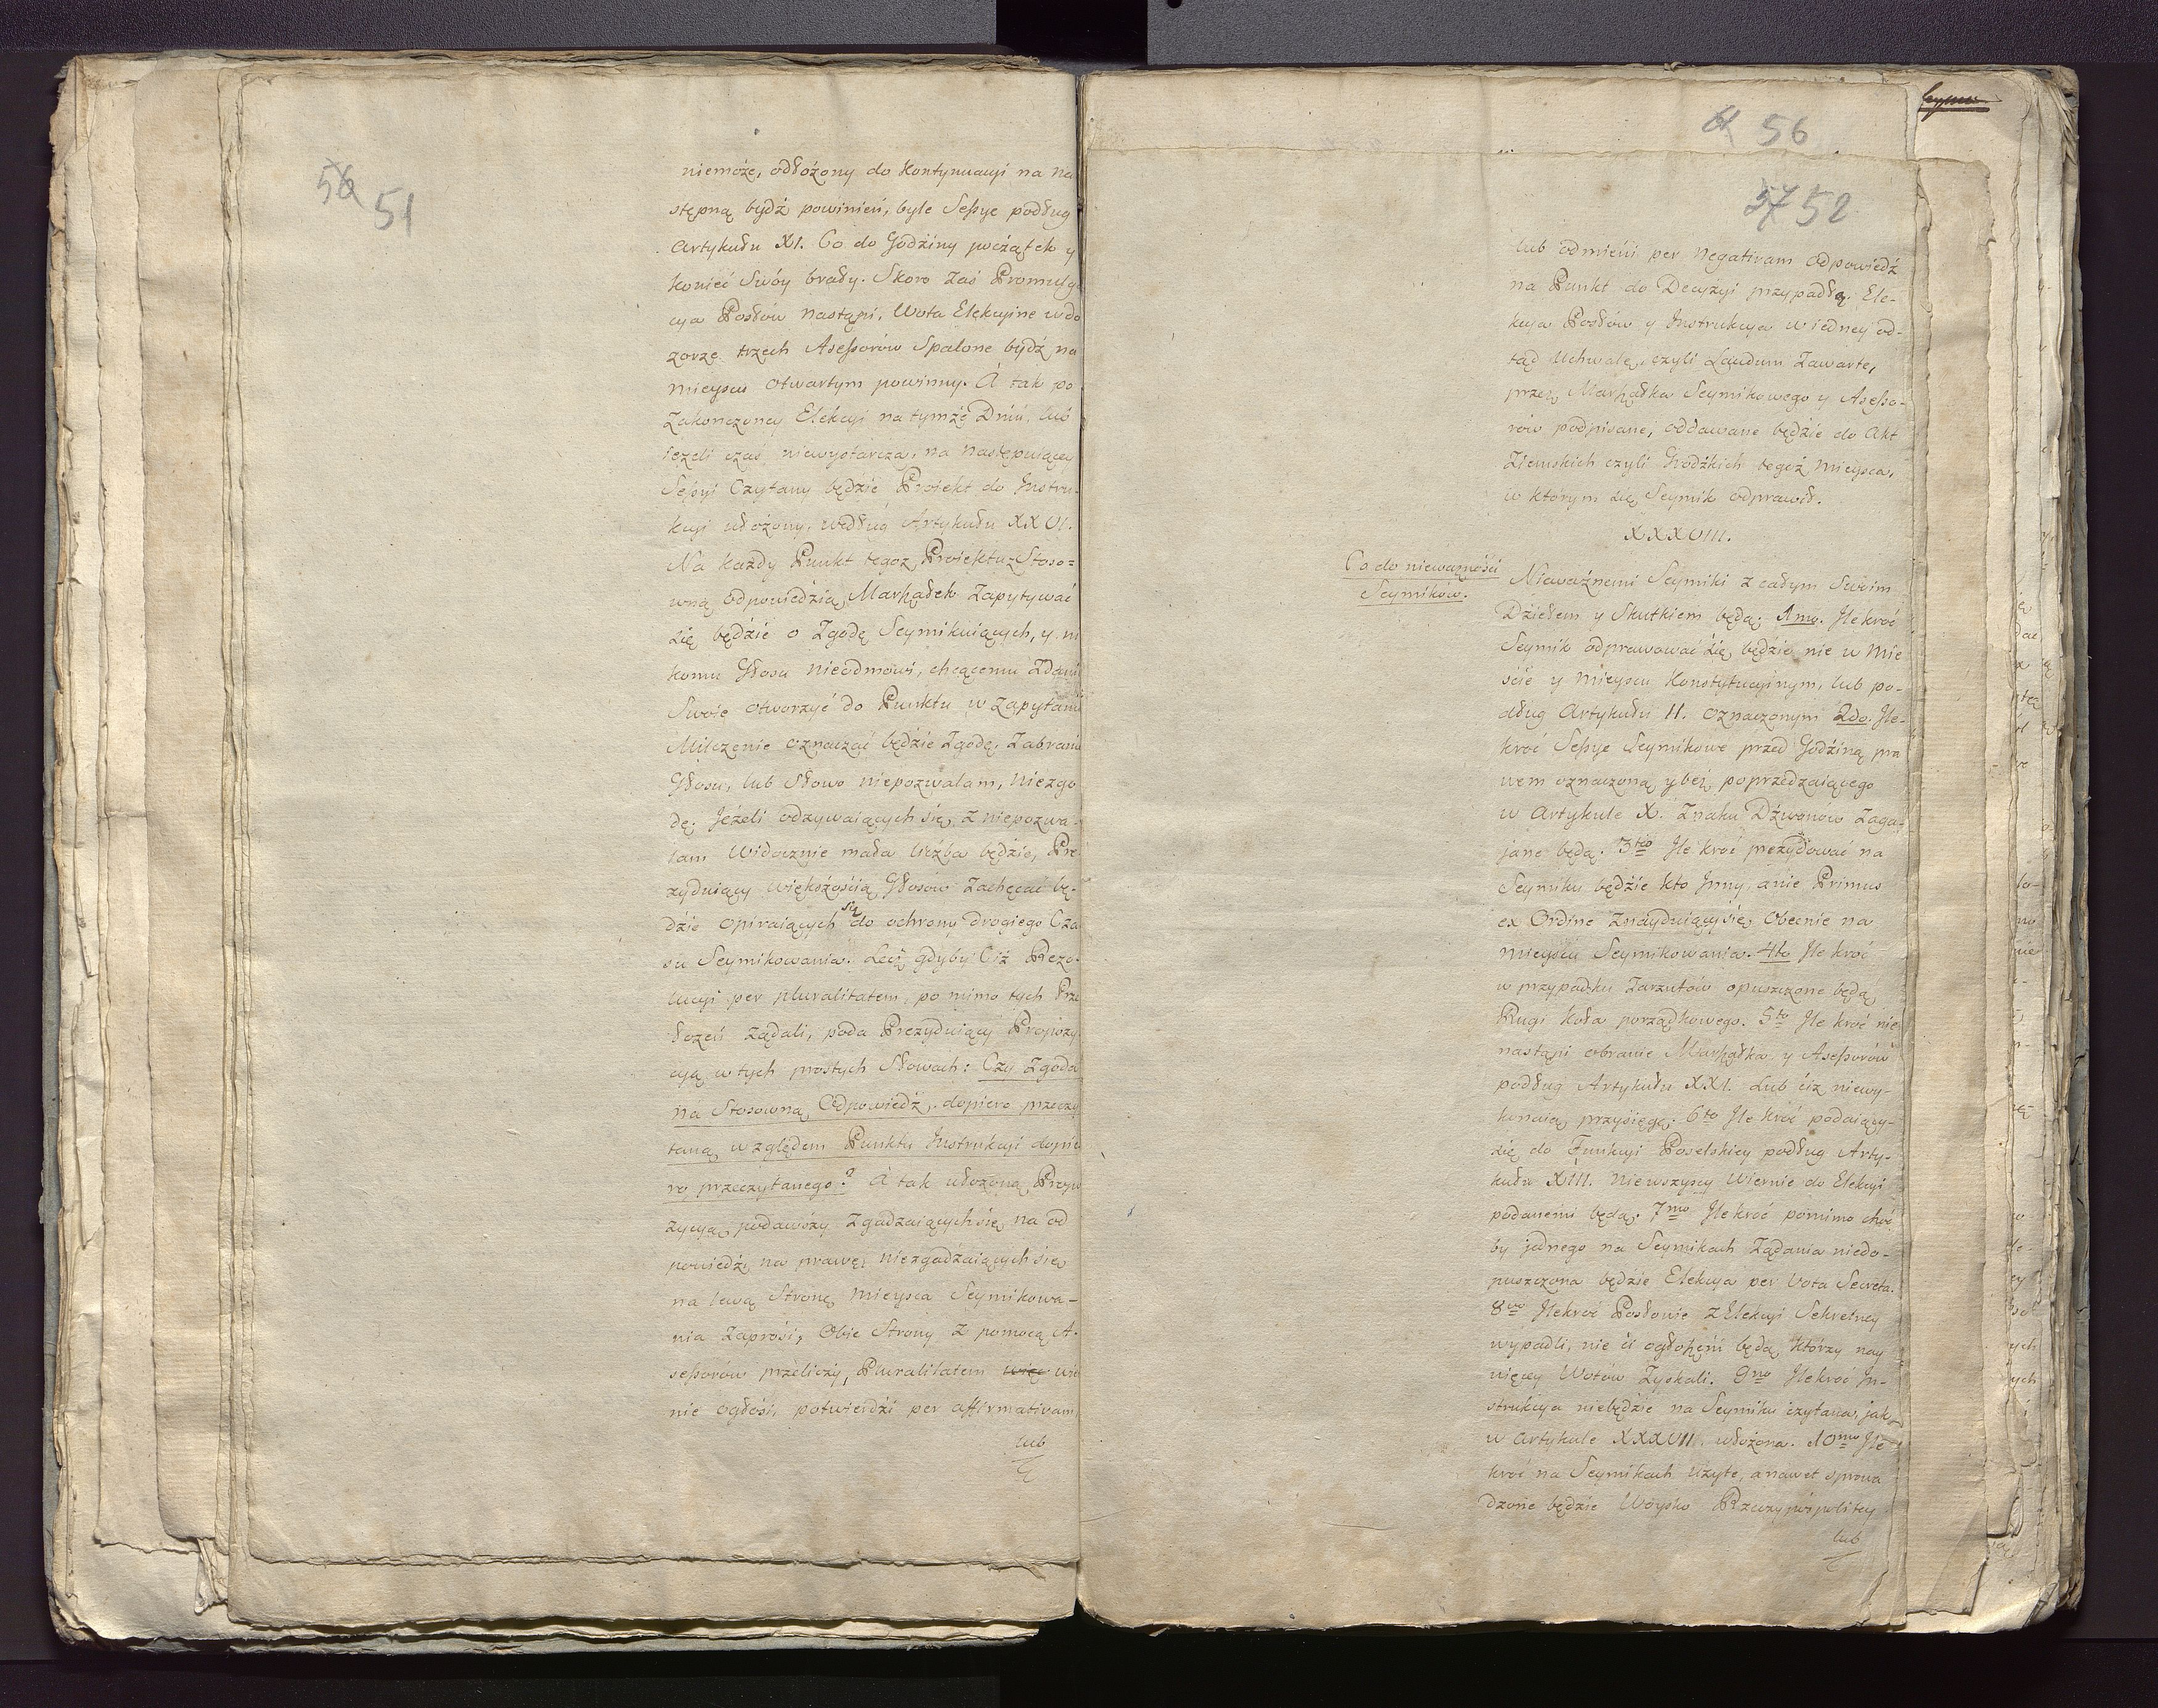 56 51
niemoże, odłożony do Kontynuacyi na na
stępną bydź powinien, byle Sessye podług
Artykułu XI. Co do Godziny początek y
koniec Swóy brały. Skoro Zaś Promulga
cya Posłów nastąpi, Wota Elekcyine w do
zorze trzech Assessorów Spalone bydź na
mieyscu otwartym powinny. A tak po
Zakonczoney Elekcyi na tymże Dniu, lub
ieżeli czas niewystarcza, na następuiącey
Sessyi Czytany będzie Proiekt do Instru-
kcyi ułożony, według Artykułu XXVI.
Na każdy Punkt tegoż Proiektu z Stoso=
wną odpowiedzią, Marszałek Zapytywać
się będzie o Zgodę Seymikuiących, y ni
komu Głosu nieodmowi, chcącemu Zdani
Swoie otworzyć do Punktu w Zapytaniu
Milczenie oznaczać będzie Zgodę, Zabranie
Głosu, lub Słowo niepozwalam, niezgo
dę. Jeżeli odzywaiących się z niepozwa-
lam Widocznie mała liczba będzie, Pre
zyduiący większością Głosów Zachęcać bę-
dzie opieraiących się do ochrony drogiego Cza
su Seymikowania. Lecz gdyby Ciż Rezo-
lucyi per pluralitatem, po mimo tych Prze
łożeń żądali, poda Prezyduiący Propozy
cyą w tych prostych Słowach: Czy Zgoda
na Stosowną Odpowiedź, dopiero przeczy
taną względem Punktu Instrukcyi dopie
ro przeczytanego? A tak ułożoną Propo
zycyą podawszy Zgadzaiących się na od
powiedź na prawę, niezgadzaiących się
na lewą Stronę mieysca Seymikowa-
nia Zaprosi, Obie Strony z pomocą A-
sessorów przeliczy, Pluralitatem więc
nie ogłosi, potwierdzi per affirmativam,
lub
56
57 52
lub odmieni per negativam odpowiedź
na Punkt do Decyzyi przypadłą. Ele-
kcya Posłów y Instrukcya w iedney od-
tąd Uchwale, czyli Laudum Zawarte,
przez Marszałka Seymikowego y Assesso-
rów podpisane, oddawane będzie do Akt
Ziemskich czyli Grodzkich tegoż mieysca,
w którym się Seymik odprawił.
XXXVIII.
Co do nieważności
Seymików.
Nieważnemi Seymiki z całym Swoim
Dziełem y Skutkiem będą: 1mo. Ilekroć
Seymik odprawować się będzie nie w Mie
ście y mieyscu Konstytucyinym, lub po-
dług Artykułu II. oznaczonym 2do. Ile-
kroć Sessye Seymikowe przed Godziną pra
wem oznaczoną y bez poprzedzaiącego
w Artykule X. Znaku Dzwonów Zaga-
jane będą. 3tio Ile kroć prezydować na
Seymiku będzie kto Inny, a nie Primus
ex Ordine Znayduiący się Obecnie na
mieyscu Seymikowania. 4to Ile kroć
w przypadku Zarzutów opuszczone będą
Rugi Koła porządkowego. 5to Ile kroć nie
nastąpi obranie Marszałka y Assessorów
podług Artykułu XXI. Lub ciż niewy-
konaią przysięgę. 6to Ile kroć podaiący-
się do Funkcyi Poselskiey podług Arty-
kułu XIII. niewszyscy Wiernie do Elekcyi
podanemi będą. 7mo Ilekroć pomimo choć
by jednego na Seymikach Żądania niedo-
puszczona będzie Elekcya per Vota Secreta.
8vo Ilekroć Posłowie z Elekcyi Sekretney
wypadli, nie ci ogłoszeni będą, którzy nay
więcey Wotów Zyskali. 9no Ilekroć In-
strukcya niebędzie na Seymiku czytana, jak
w Artykule XXXVII. ułożona. 10mo Ile
kroć na Seymikach użyte, a nawet sprowa
dzone będzie Woysko Rzeczypospolitey
lub